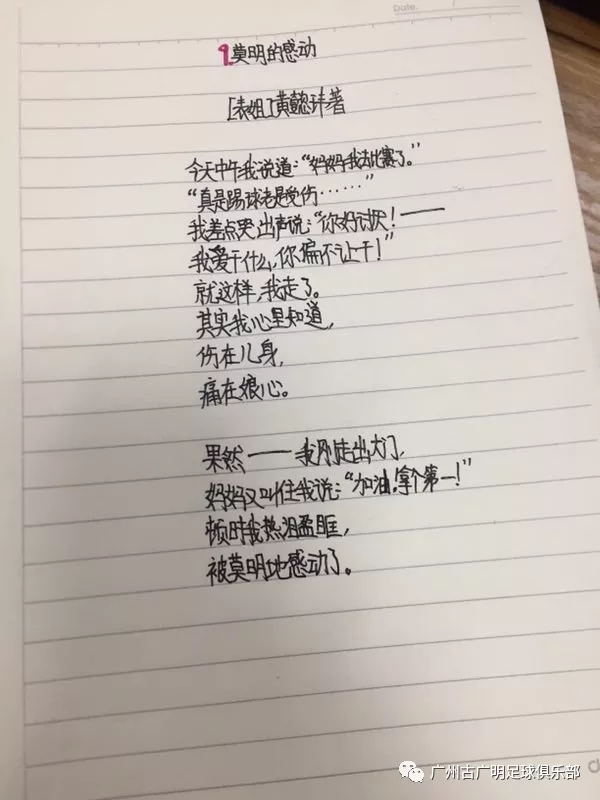 Date.
9.莫明的感动
[表姐]黄懿玮著
今天中午我说道:“妈妈我去比赛了。”
“真是踢球老是受伤……”
我差点哭出声说:“你好讨厌!——
我爱干什么,你偏不让干!”
就这样,我走了。
其实我心里知道,
伤在儿身,
痛在娘心。
果然——我刚走出大门,
妈妈又叫住我说:“加油!拿个第一!”
顿时我热泪盈眶,
被莫明地感动了。
广州古广明足球俱乐部